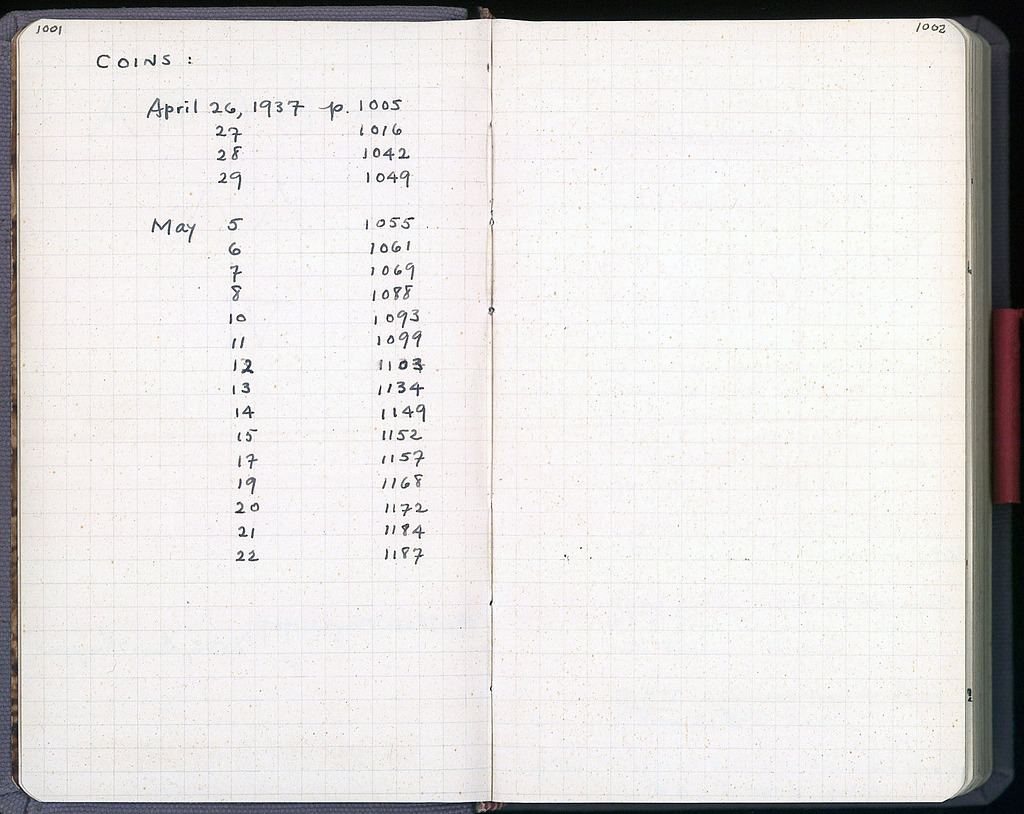 1001
COINS :
April 26, 1937 p. 1005
27 1016
28 1042
29 1049
May 5 1055
6 1061
7 1069
8 1088
10 1093
11 1099
12 1103
13 1134
14 1149
15 1152
17 1157
19 1168
20 1172
21 1184
22 1187
1002